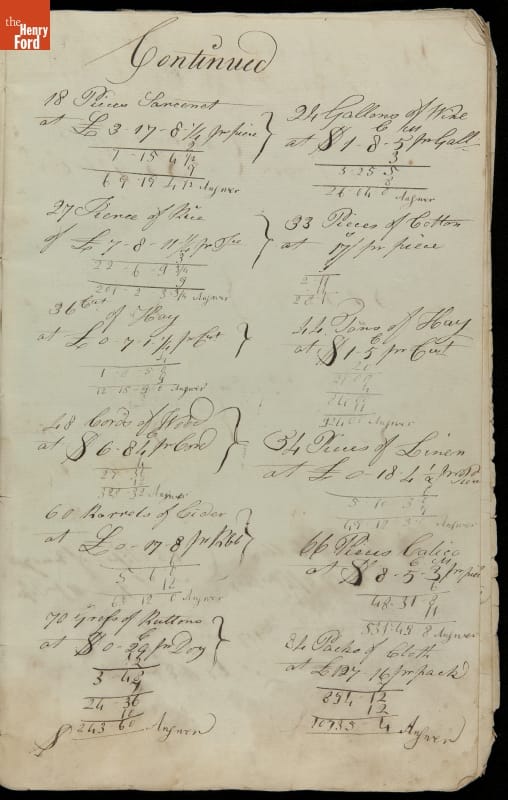 the
Henry
Ford
Continued
18 Pieces Sarcenet
at £ 3-17-8 1/4 pr piece
2
7-15 4 1/2
9
69-19 4 1/2 Answer
27 Tierce of Rice
of £ 7-8-11 1/4 pr Tce
3
22-6-9 3/4
9
201-2 3 3/4 Answer
36 Cwt of Hay
at £ 0-7-1 1/4 pr Cwt
12-15-9-0 Answer
48 Cords of Wood
at $ 6-84 pr Cord
Answer
60 Barrels of Cider
at £ 0-17-8 pr Rbl
5
12
Answer
70 Gross of Buttons
at $ 0-29 pr Doz
12
3-48
7
24-36
10
$ 243-60 Answer
24 Gallons of Wine
at $ 1-8-5 pr Gall
3
3-25-5
8
26-04 0 Answer
33 Pieces of Cotton
at 17/ pr piece
44 Tons of Hay
at $ 1-5 pr Cwt
20
4
924 00 Answer
34 Pieces of Linen
at £ 0-18-4 1/2 pr
Answer
66 Pieces Calico
at $ 8-5-3 pr piece
6
48-31 8
11
531-49 8 Answer
84 Packs of Cloth
at £ 127-16 pr pack
7
894 12
12
10735 4 Answer